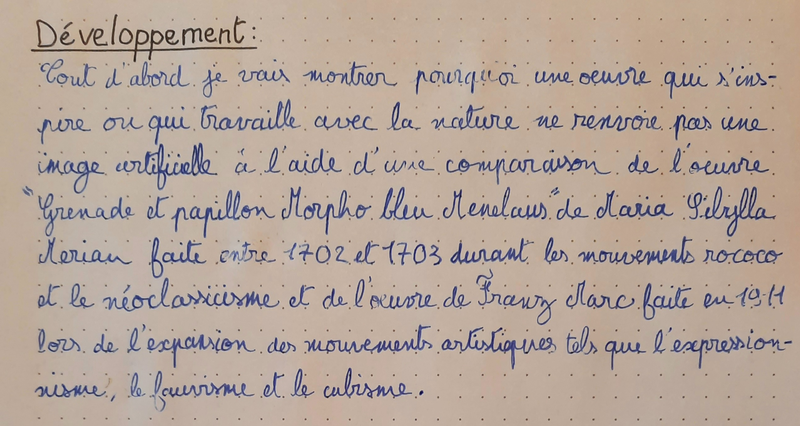 Développement:
Tout d'abord je vais montrer pourquoi une oeuvre qui s'ins-
pire ou qui travaille avec la nature ne renvoie pas une
image artificielle à l'aide d'une comparaison de l'oeuvre
"Grenade et papillon Morpho bleu Menelaus" de Maria Sibylla
Merian faite entre 1702 et 1703 durant les mouvements rococo
et le néoclassicisme et de l'œuvre de Franz Marc faite en 1911
lors de l'expansion des mouvements artistiques tels que l'expression-
nisme, le fauvisme et le cubisme.